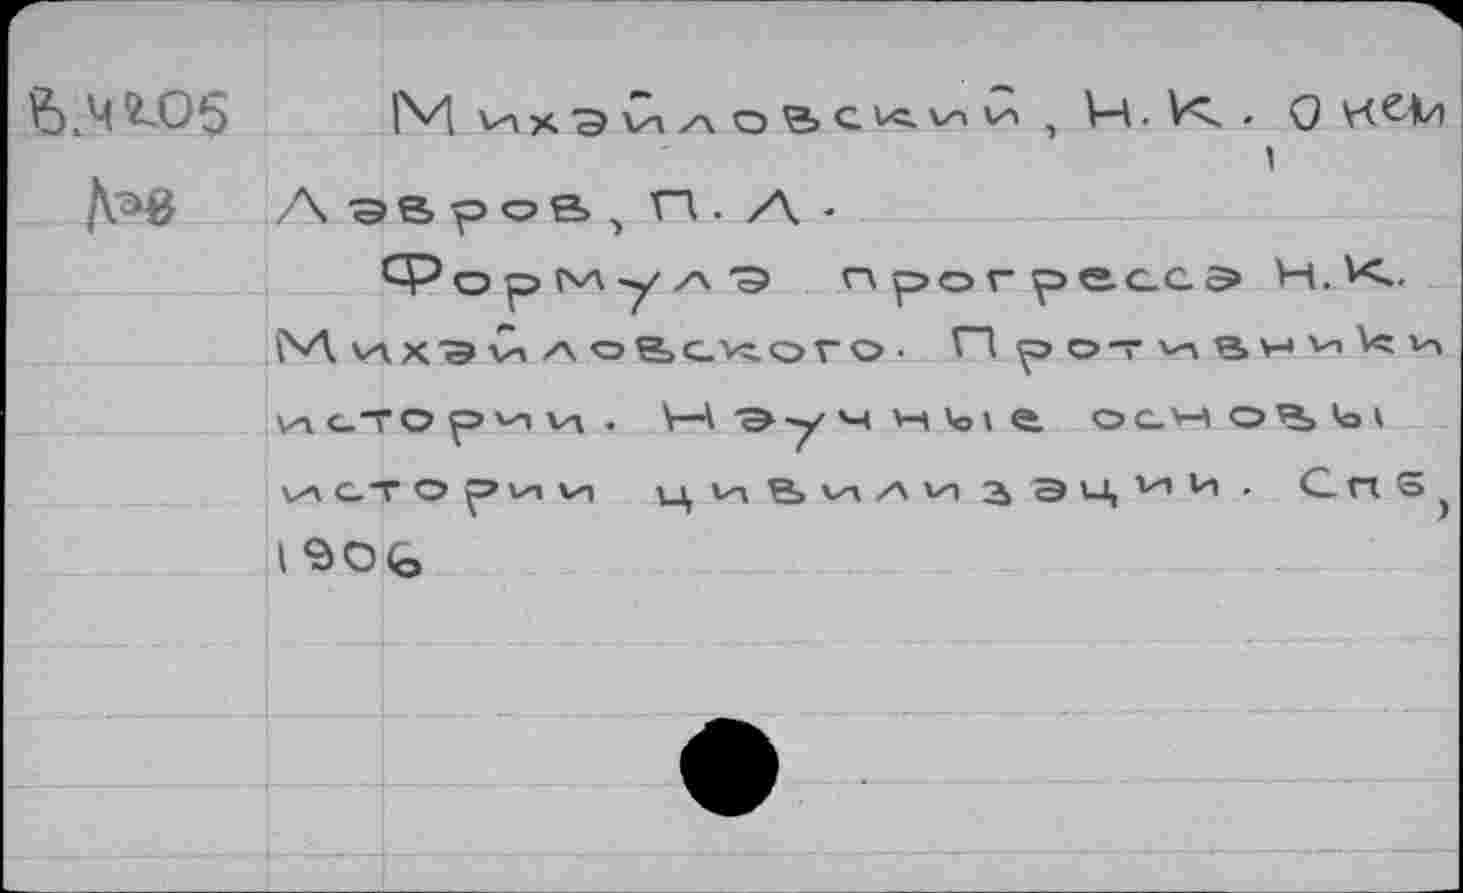 В.Ч2.05 Михайловский, Н.К. О нем
Лав Лавров, П.Л.
Формула прогресса Н.К.
Михайловского. Противники
истории. Научные основы
истории цивилизации. Спб,
1906